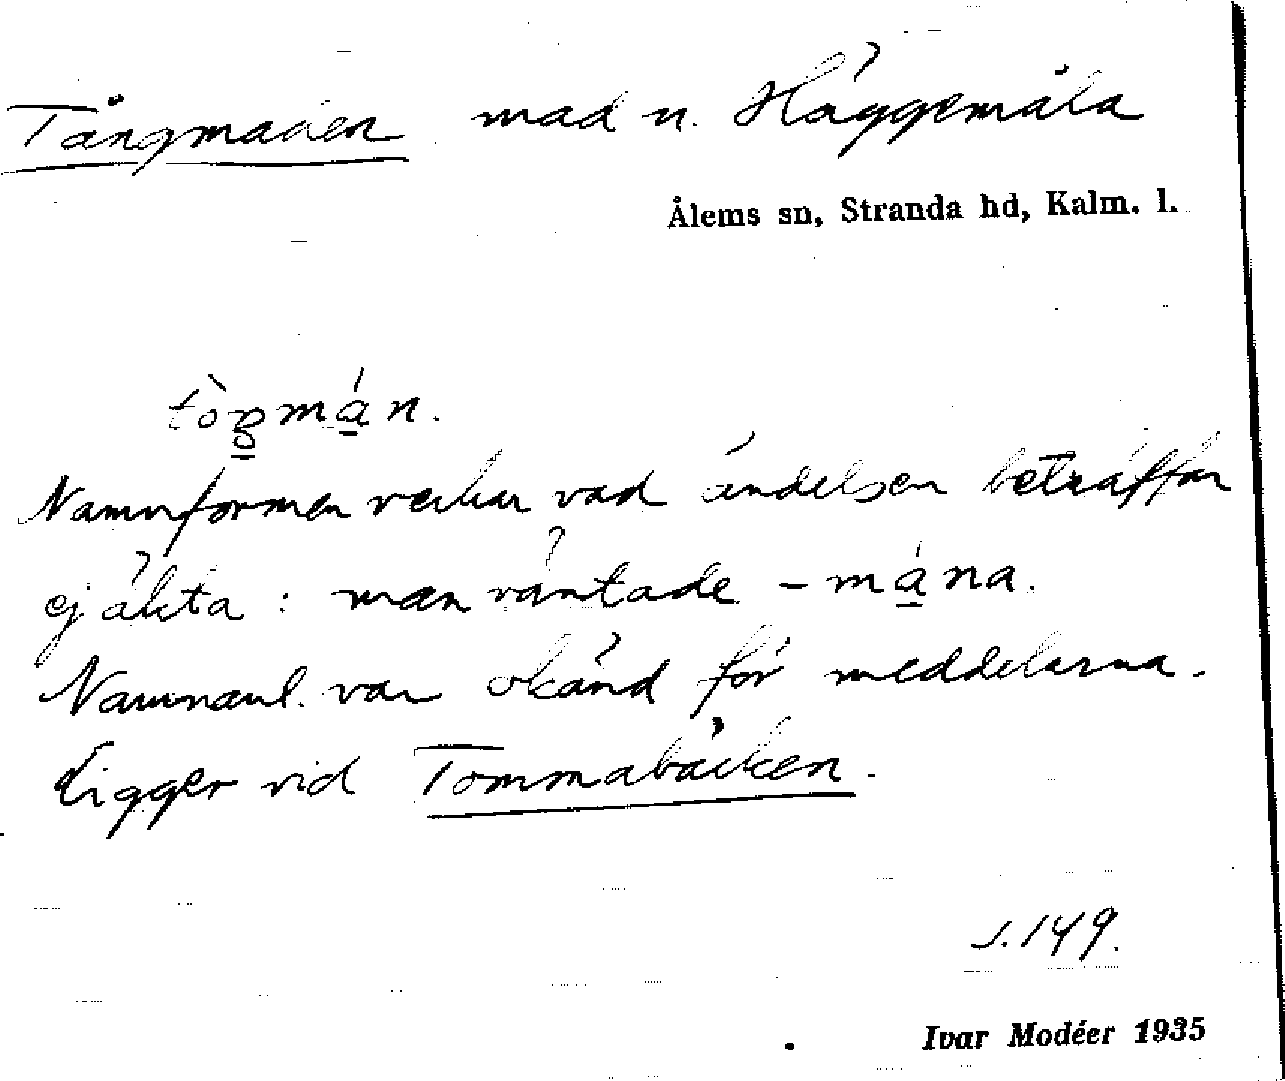 Tångmaden mad n. Häggemåla
Ålems sn, Stranda hd, Kalm. l.
Namnformen verkar vad ändelsen beträffar
ej äkta: man väntade - mána.
Namnanl. var okänd för meddelarna.
Ligger vid Tommabäcken.
s. 149.
Ivar Modéer 1935